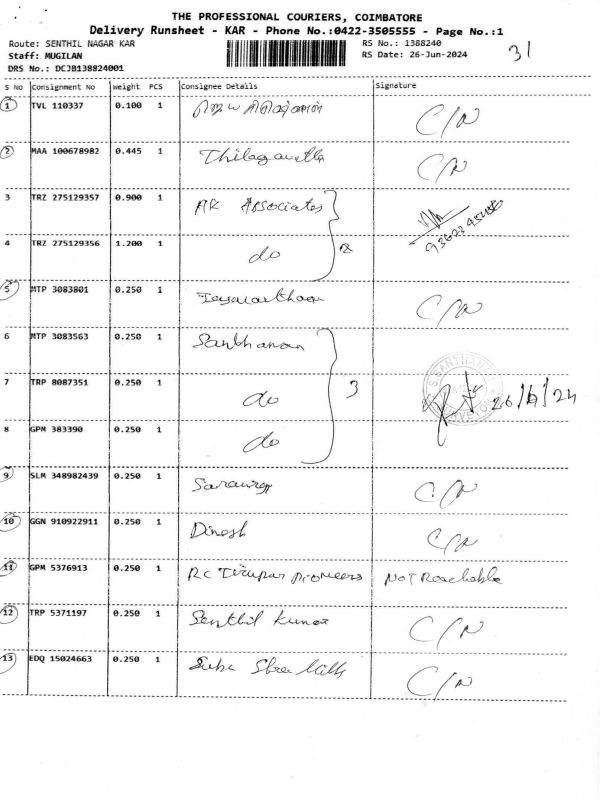 THE PROFESSIONAL COURIERS, COIMBATORE
Delivery Runsheet - KAR - Phone No.:0422-3505555 - Page No.:1
Route: SENTHIL NAGAR KAR RS No.: 1388240 31
Staff: MUGILAN RS Date: 26-Jun-2024
DRS No.: DCJB138824001
S No Consignment No Weight PCS Consignee Details Signature
1 TVL 110337 0.100 1 C/N
2 MAA 100678982 0.445 1 C/N
3 TRZ 275129357 0.900 1 AR Associates
4 TRZ 275129356 1.200 1 do 2
5 MTP 3083801 0.250 1 C/N
6 MTP 3083563 0.250 1 Santhanam
7 TRP 8087351 0.250 1 do 3 26/6/24
8 GPM 383390 0.250 1 do
9 SLM 348982439 0.250 1 C/N
10 GGN 910922911 0.250 1 Dinesh C/N
11 GPM 5376913 0.250 1 RC Tirupur Pioneers Not Reachable
12 TRP 5371197 0.250 1 Senthil Kumar C/N
13 EDQ 15024663 0.250 1 C/N